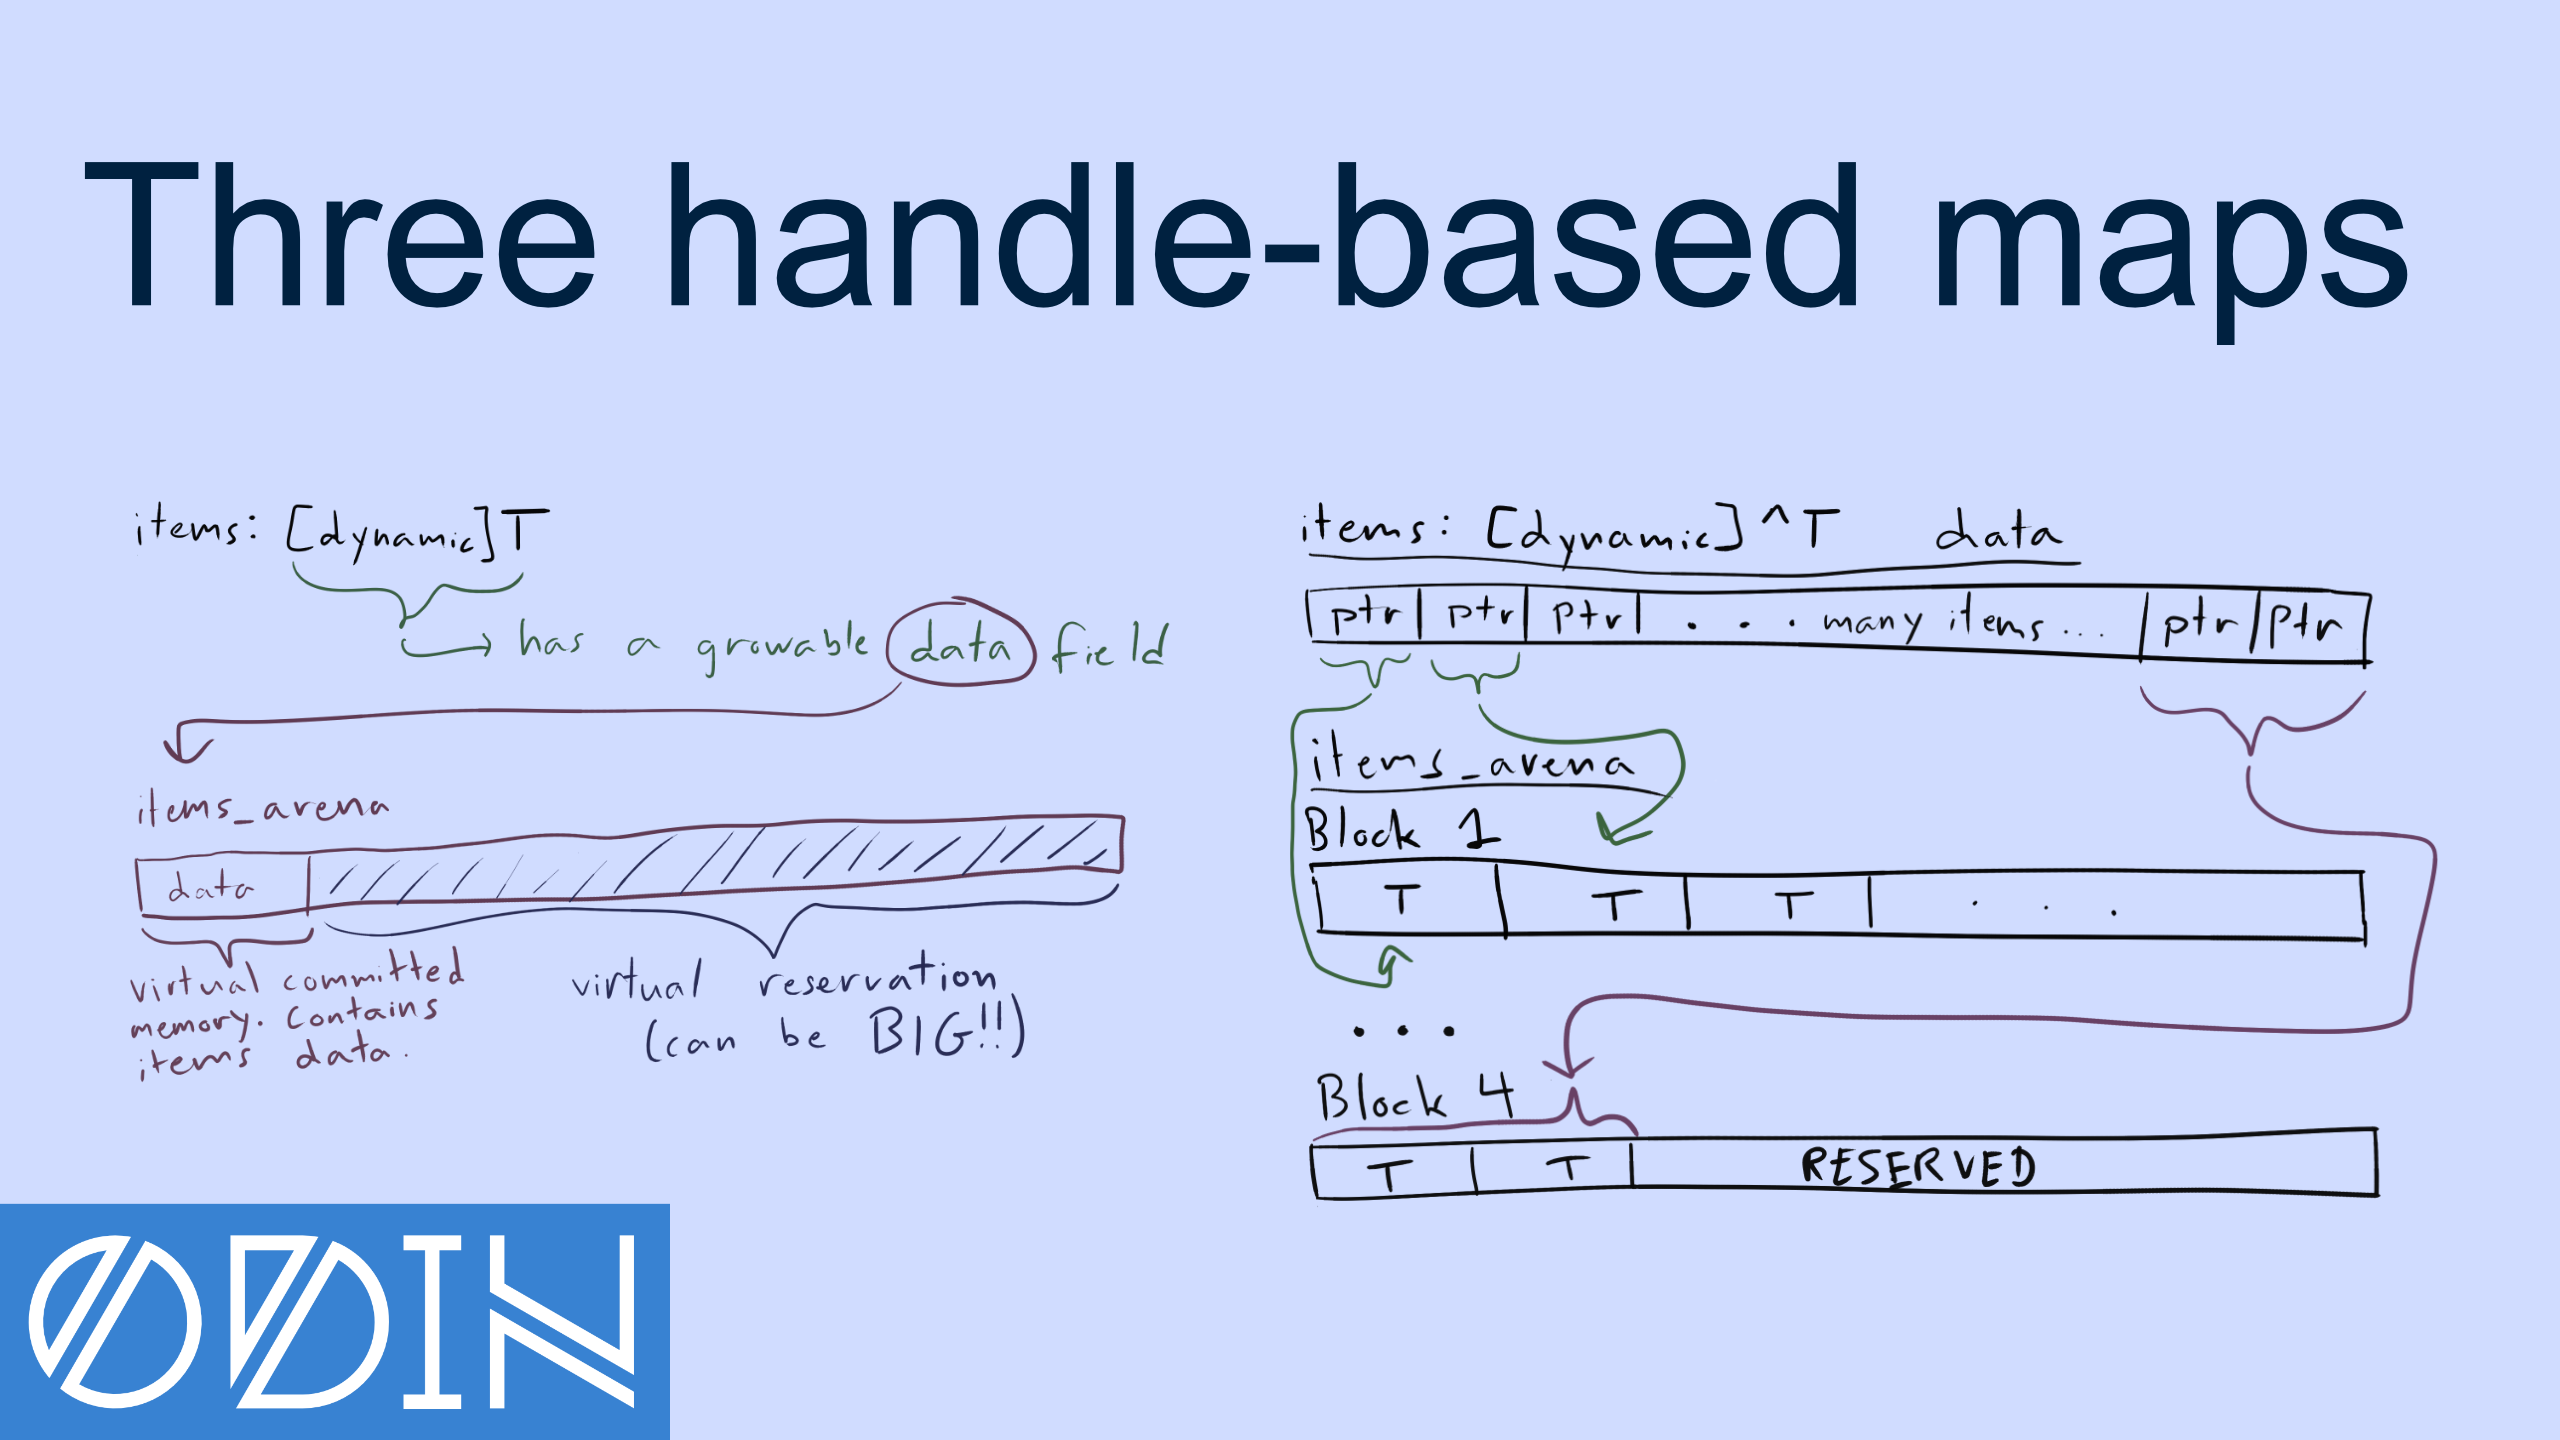 Three handle-based maps
items: [dynamic]T
has a growable data field
items_arena
data
virtual committed
memory. Contains
items data.
virtual reservation
(can be BIG!!)
items: [dynamic]^T data
ptr ptr ptr . . . many items... ptr ptr
items_arena
Block 1
T T T . . .
. . .
Block 4
T T RESERVED
ODIN